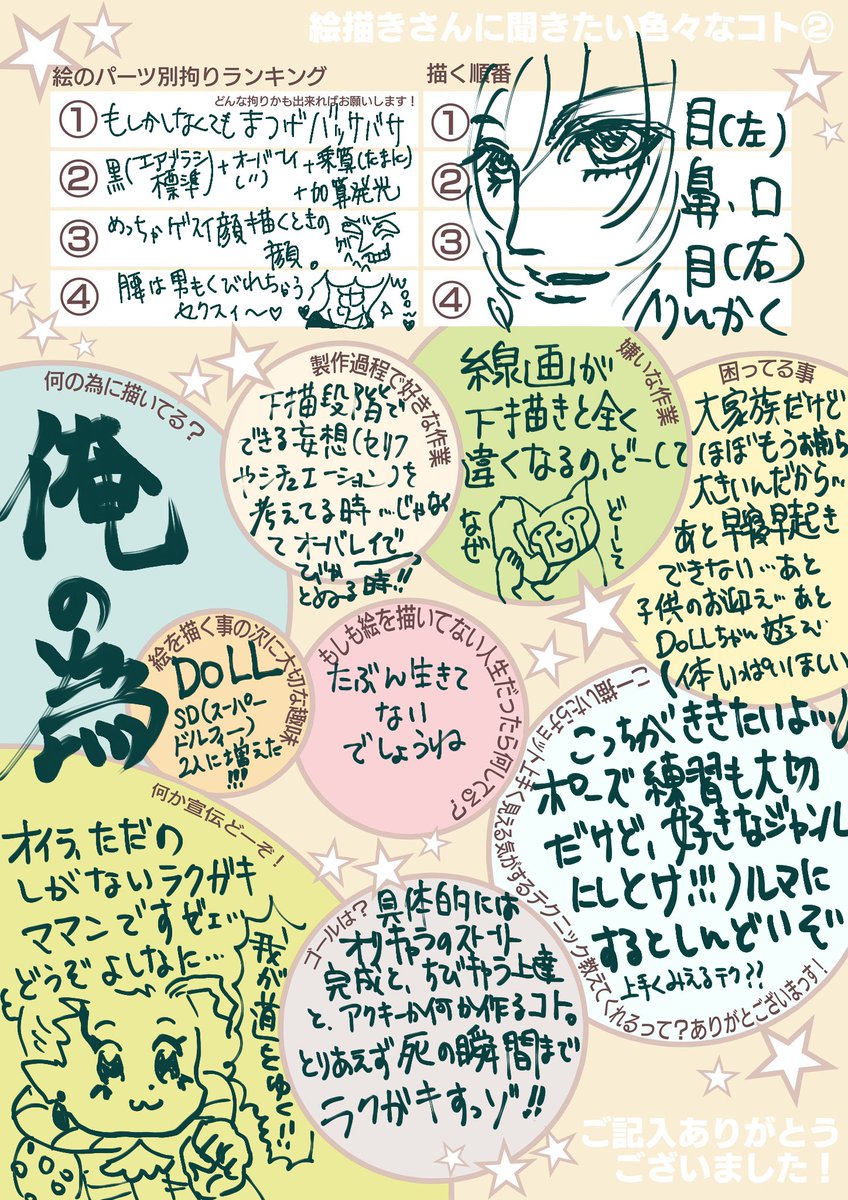 絵描きさんに聞きたい色々なコト②
絵のパーツ別拘りランキング
どんな拘りかも出来ればお願いします!
①もしかしなくてもまつげバッサバサ
②黒(エアブラシ標準)+オーバーレイ(しつ)+乗算(たまに)
+加算発光
③めっちゃゲスイ顔描くときの
顔。
ゲヘ
④腰は男もくびれちゃう
セクスィ〜♡
描く順番
①目(左)
②鼻、口
③目(右)
④りんかく
何の為に描いてる?
俺の為
製作過程で好きな作業
下描段階で
できる妄想(セリフ
やシチュエーション)を
考えてる時…じゃなく
てオーバレイで
びゃっ
とぬる時!!
嫌いな作業
線画が
下描きと全く
違くなるの、どーして
なぜ
どーして
困ってる事
大家族だけど
ほぼもうお前ら
大きいんだから…
あと早寝早起き
できない…あと
子供のお迎え…あと
DOLLちゃん遊び
(体いっぱいほしい
絵を描く事の次に大切な趣味
DOLL
SD(スーパー
ドルフィー)
2人に増えた
!!!
もしも絵を描いてない人生だったら何してる?
たぶん生きて
ない
でしょうね
こー描いたらチョット上手く見える気がするテクニック教えてくれるって?ありがとございまっす!
こっちがききたいよ…
ポーズ練習も大切
だけど、好きなジャンル
にしとけ!!!ノルマに
するとしんどいぞ
上手くみえるテク??
何か宣伝どーぞ!
オイラ、ただの
しがないラクガキ
ママンですゼェ…
どうぞよしなに…
我が道をゆく!!
ゴールは?
具体的には
オリキャラのストーリー
完成と、ちびキャラ上達
と、アクキーか何か作るコト。
とりあえず死の瞬間まで
ラクガキすっゾ!!
ご記入ありがとう
ございました!